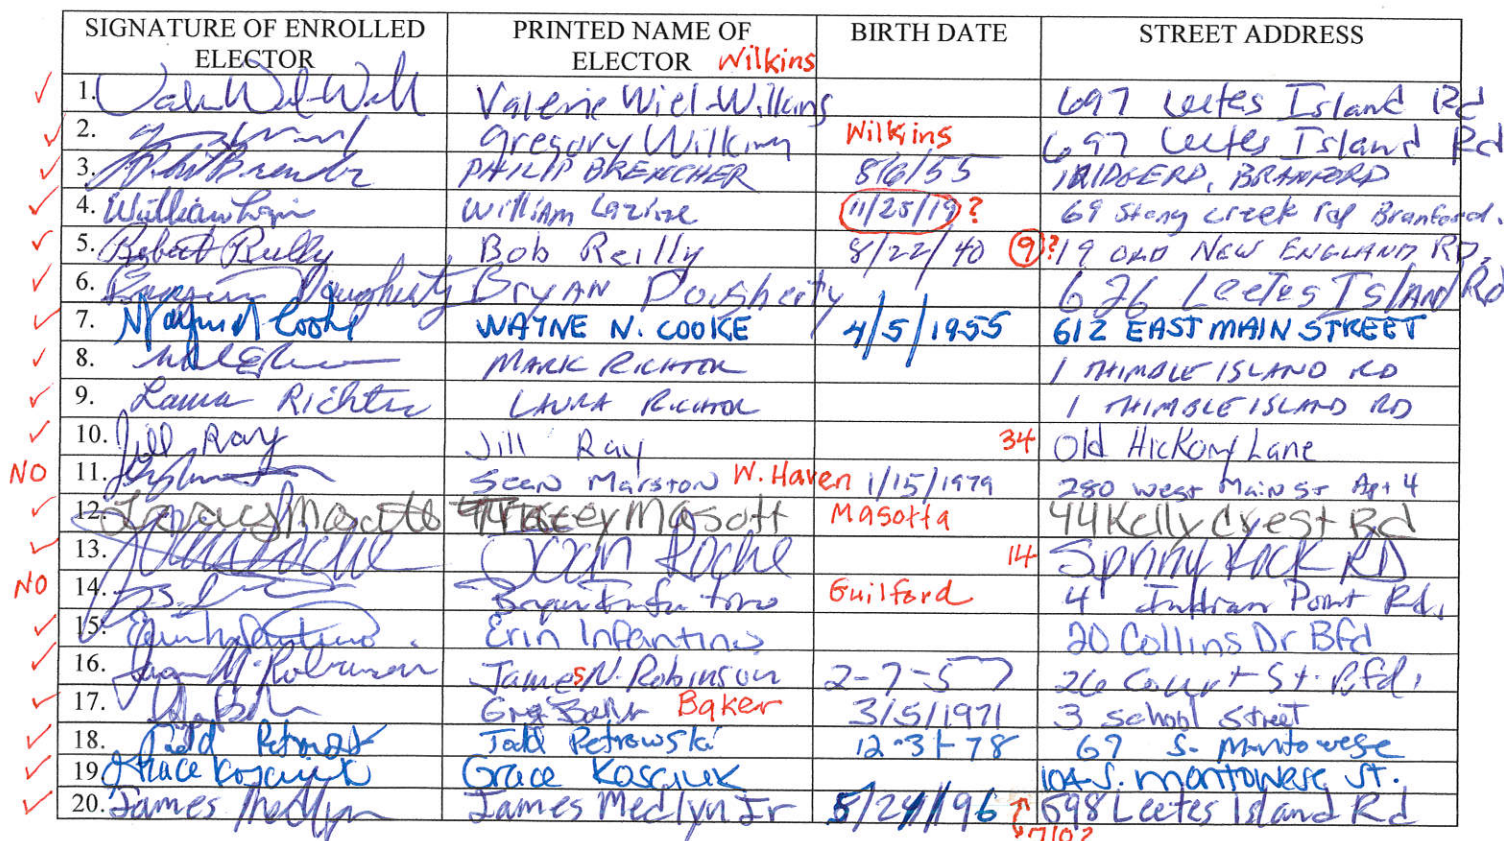 SIGNATURE OF ENROLLED ELECTOR PRINTED NAME OF ELECTOR Wilkins BIRTH DATE STREET ADDRESS
✓ 1. Valerie Wiel-Wilkins 697 Leetes Island Rd
✓ 2. Gregory Wilkins Wilkins 697 Leetes Island Rd
✓ 3. PHILIP BRENCHER 8/6/55 BRANFORD
✓ 4. William William 11/25/19 ? 69 Stony Creek Rd Branford.
✓ 5. Robert Reilly Bob Reilly 8/22/40 9 ? 19 OLD NEW ENGLAND RD.
✓ 6. Dougherty BRYAN Dougherty 626 Leetes Island Rd
✓ 7. Cooke WAYNE N. COOKE 4/5/1955 612 EAST MAIN STREET
✓ 8. MARK RICHTER 1 THIMBLE ISLAND RD
✓ 9. Laura Richter LAURA RICHTER 1 THIMBLE ISLAND RD
✓ 10. Jill Ray Jill Ray 34 Old Hickory Lane
NO 11. Sean Marston W. Haven 1/15/1979 280 West Main St Apt 4
✓ 12. Tracey Masott Masotta 44 Kelly Crest Rd
✓ 13. Roche 14 Spring Rock RD
NO 14. Guilford 4 Indian Point Rd.
✓ 15. Erin Infantino 20 Collins Dr Bfd
✓ 16. Robinson James N. Robinson 2-7-57 26 Court St. Bfd.
✓ 17. Greg Baker Baker 3/5/1971 3 School Street
✓ 18. Todd Petrowski Todd Petrowski 12-31-78 69 S. Montowese
✓ 19. Grace Kosciuk Grace Kosciuk 104 S. Montowese St.
✓ 20. James Medlyn James Medlyn Jr 5/24/96 698 Leetes Island Rd
710?